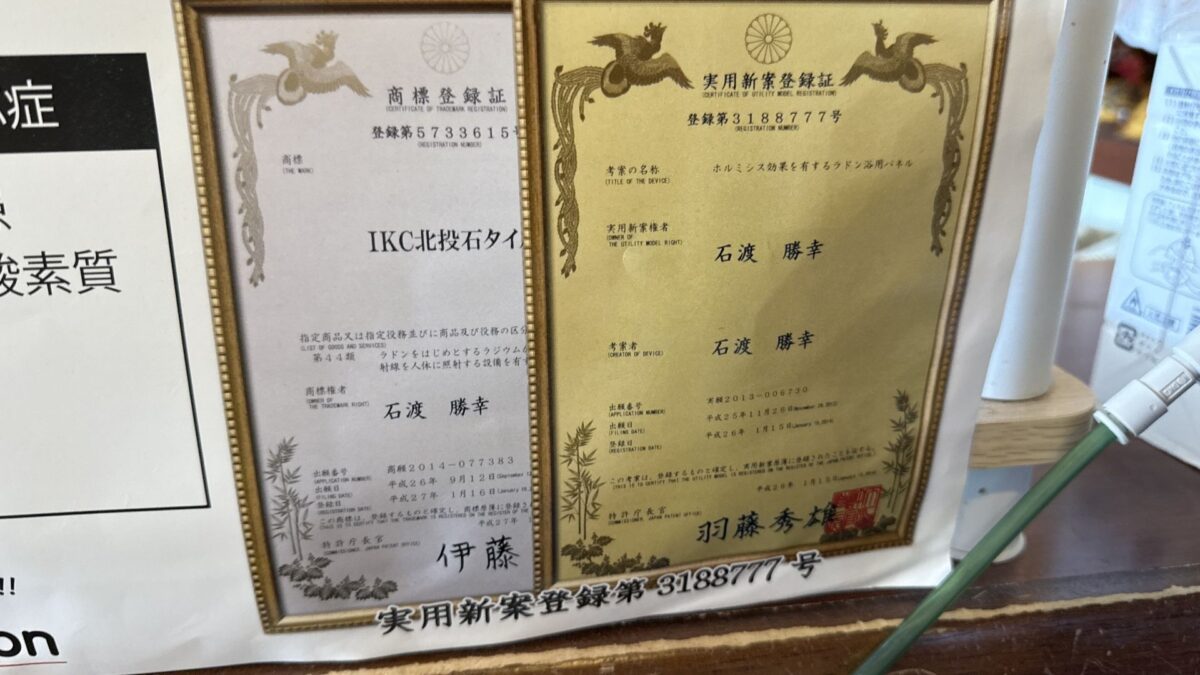 症
酸素質
!!
on
商標登録証
(CERTIFICATE OF TRADEMARK REGISTRATION)
登録第5733615号
(REGISTRATION NUMBER)
商標
(THE MARK)
IKC北投石タイ
指定商品又は指定役務並びに商品及び役務の区分
(LIST OF GOODS AND SERVICES)
第44類 ラドンをはじめとするラジウム
射線を人体に照射する設備を有
商標権者
(OWNER OF
THE TRADEMARK RIGHT)
石渡 勝幸
出願番号 商願2014-077383
(APPLICATION NUMBER)
出願日 平成26年 9月12日
(FILING DATE)
登録日 平成27年 1月16日
(REGISTRATION DATE)
この商標は、登録するものと確定し、商標原簿に登録さ
(THIS IS TO CERTIFY THAT THE TRADEMARK IS REGISTERED ON THE REGISTER OF THE
平成27年
特許庁長官
(COMMISSIONER, JAPAN PATENT OFFICE)
伊藤
実用新案登録証
(CERTIFICATE OF UTILITY MODEL REGISTRATION)
登録第3188777号
(REGISTRATION NUMBER)
考案の名称 ホルミシス効果を有するラドン浴用パネル
(TITLE OF THE DEVICE)
実用新案権者
(OWNER OF
THE UTILITY MODEL RIGHT)
石渡 勝幸
考案者
(CREATOR OF DEVICE)
石渡 勝幸
出願番号 実願2013-006730
(APPLICATION NUMBER)
出願日 平成25年11月26日(November 26,2013)
(FILING DATE)
登録日 平成26年 1月15日(January 15,2014)
(REGISTRATION DATE)
この考案は、登録するものと確定し、実用新案原簿に登録されたことを証する。
(THIS IS TO CERTIFY THAT THE UTILITY MODEL IS REGISTERED ON THE REGISTER OF THE JAPAN PATENT OFFICE.)
平成26年 1月15日(January 15,2014)
特許庁長官
(COMMISSIONER, JAPAN PATENT OFFICE)
羽藤秀雄
実用新案登録第 3188777 号